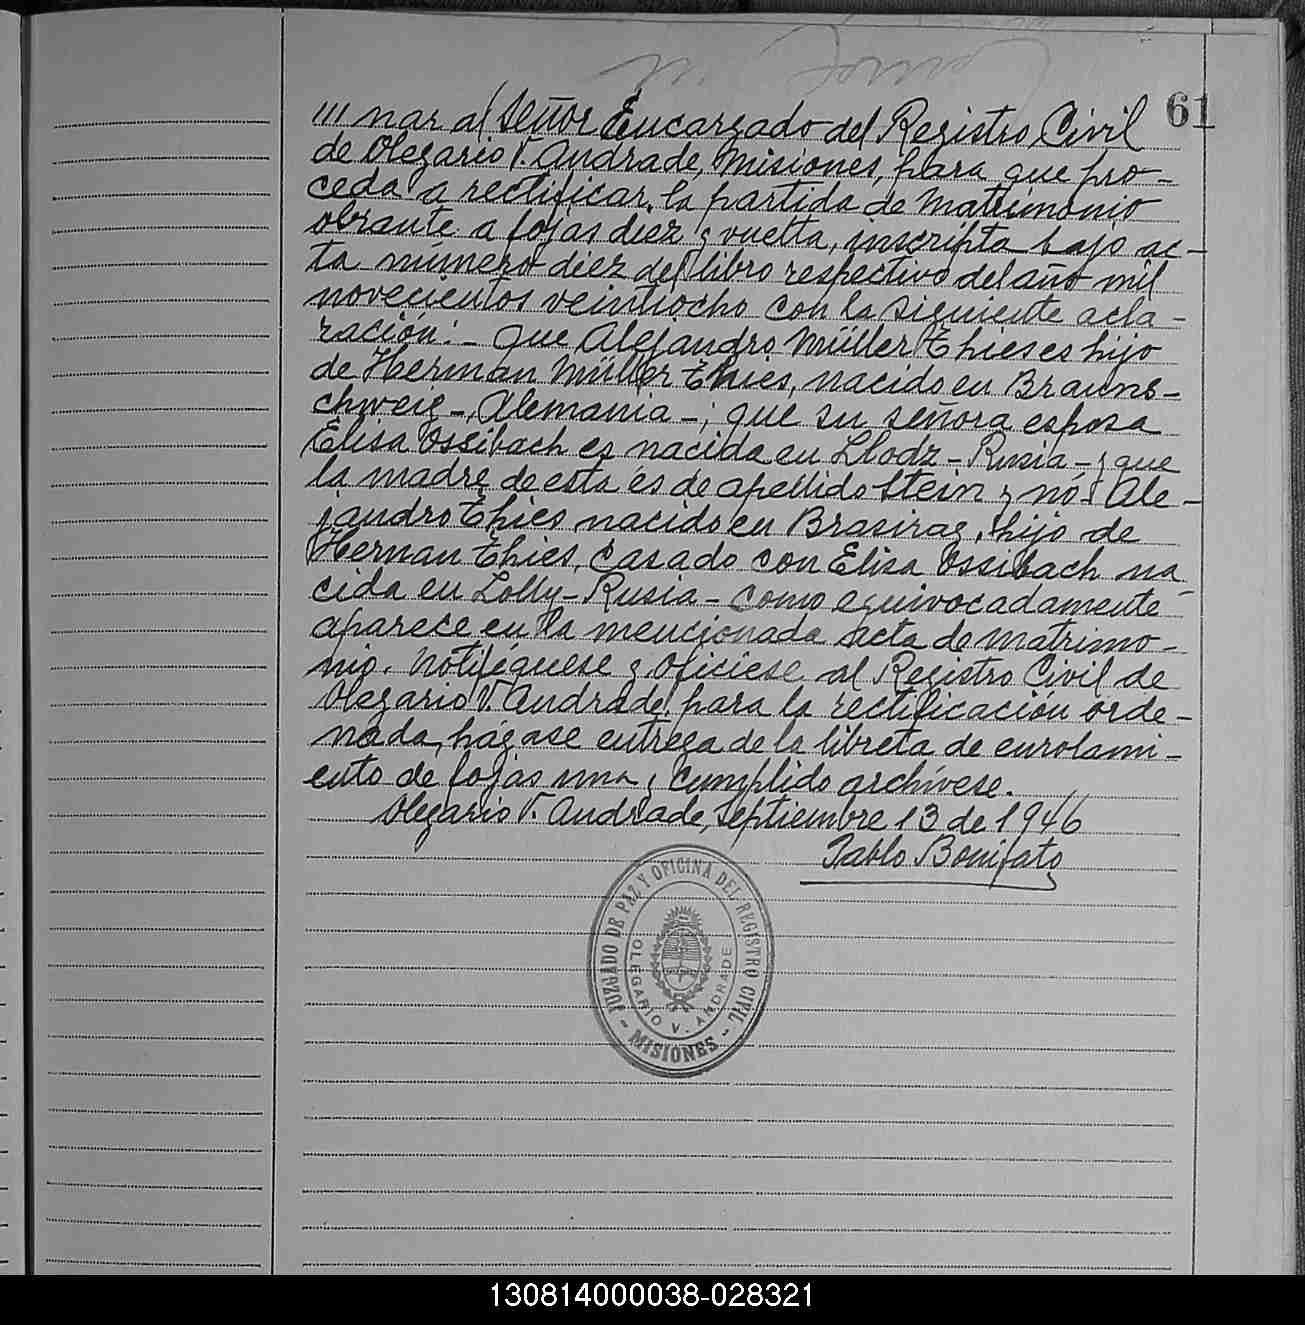 61
/// nar al Señor Encargado del Registro Civil
de Olegario V. Andrade, Misiones, para que pro-
ceda a rectificar la partida de Matrimonio
obrante a fojas diez y vuelta, inscripta bajo ac-
ta número diez del libro respectivo del año mil
novecientos veintiocho con la siguiente acla-
ración: - Que Alejandro Müller Thies es hijo
de Herman Müller Thies, nacido en Brauns-
chweig -, Alemania -; que su señora esposa
Elisa Ossibach es nacida en Llodz - Rusia - y que
la madre de esta és de apellido Stein y nó: Ale-
jandro Thies nacido en Brasiraz, hijo de
Hernan Thies, casado con Elisa Ossibach na
cida en Lolly - Rusia - como equivocadamente
aparece en la mencionada acta de matrimo-
nio. Notifíquese y oficiese al Registro Civil de
Olegario V. Andrade para la rectificación orde-
nada, hágase entrega de la libreta de enrolami-
ento de fojas una y cumplido archívese.
Olegario V. Andrade, Septiembre 13 de 1946
Pablo Bonifato
JUZGADO DE PAZ Y OFICINA DEL REGISTRO CIVIL
OLEGARIO V. ANDRADE
- MISIONES -
130814000038-028321